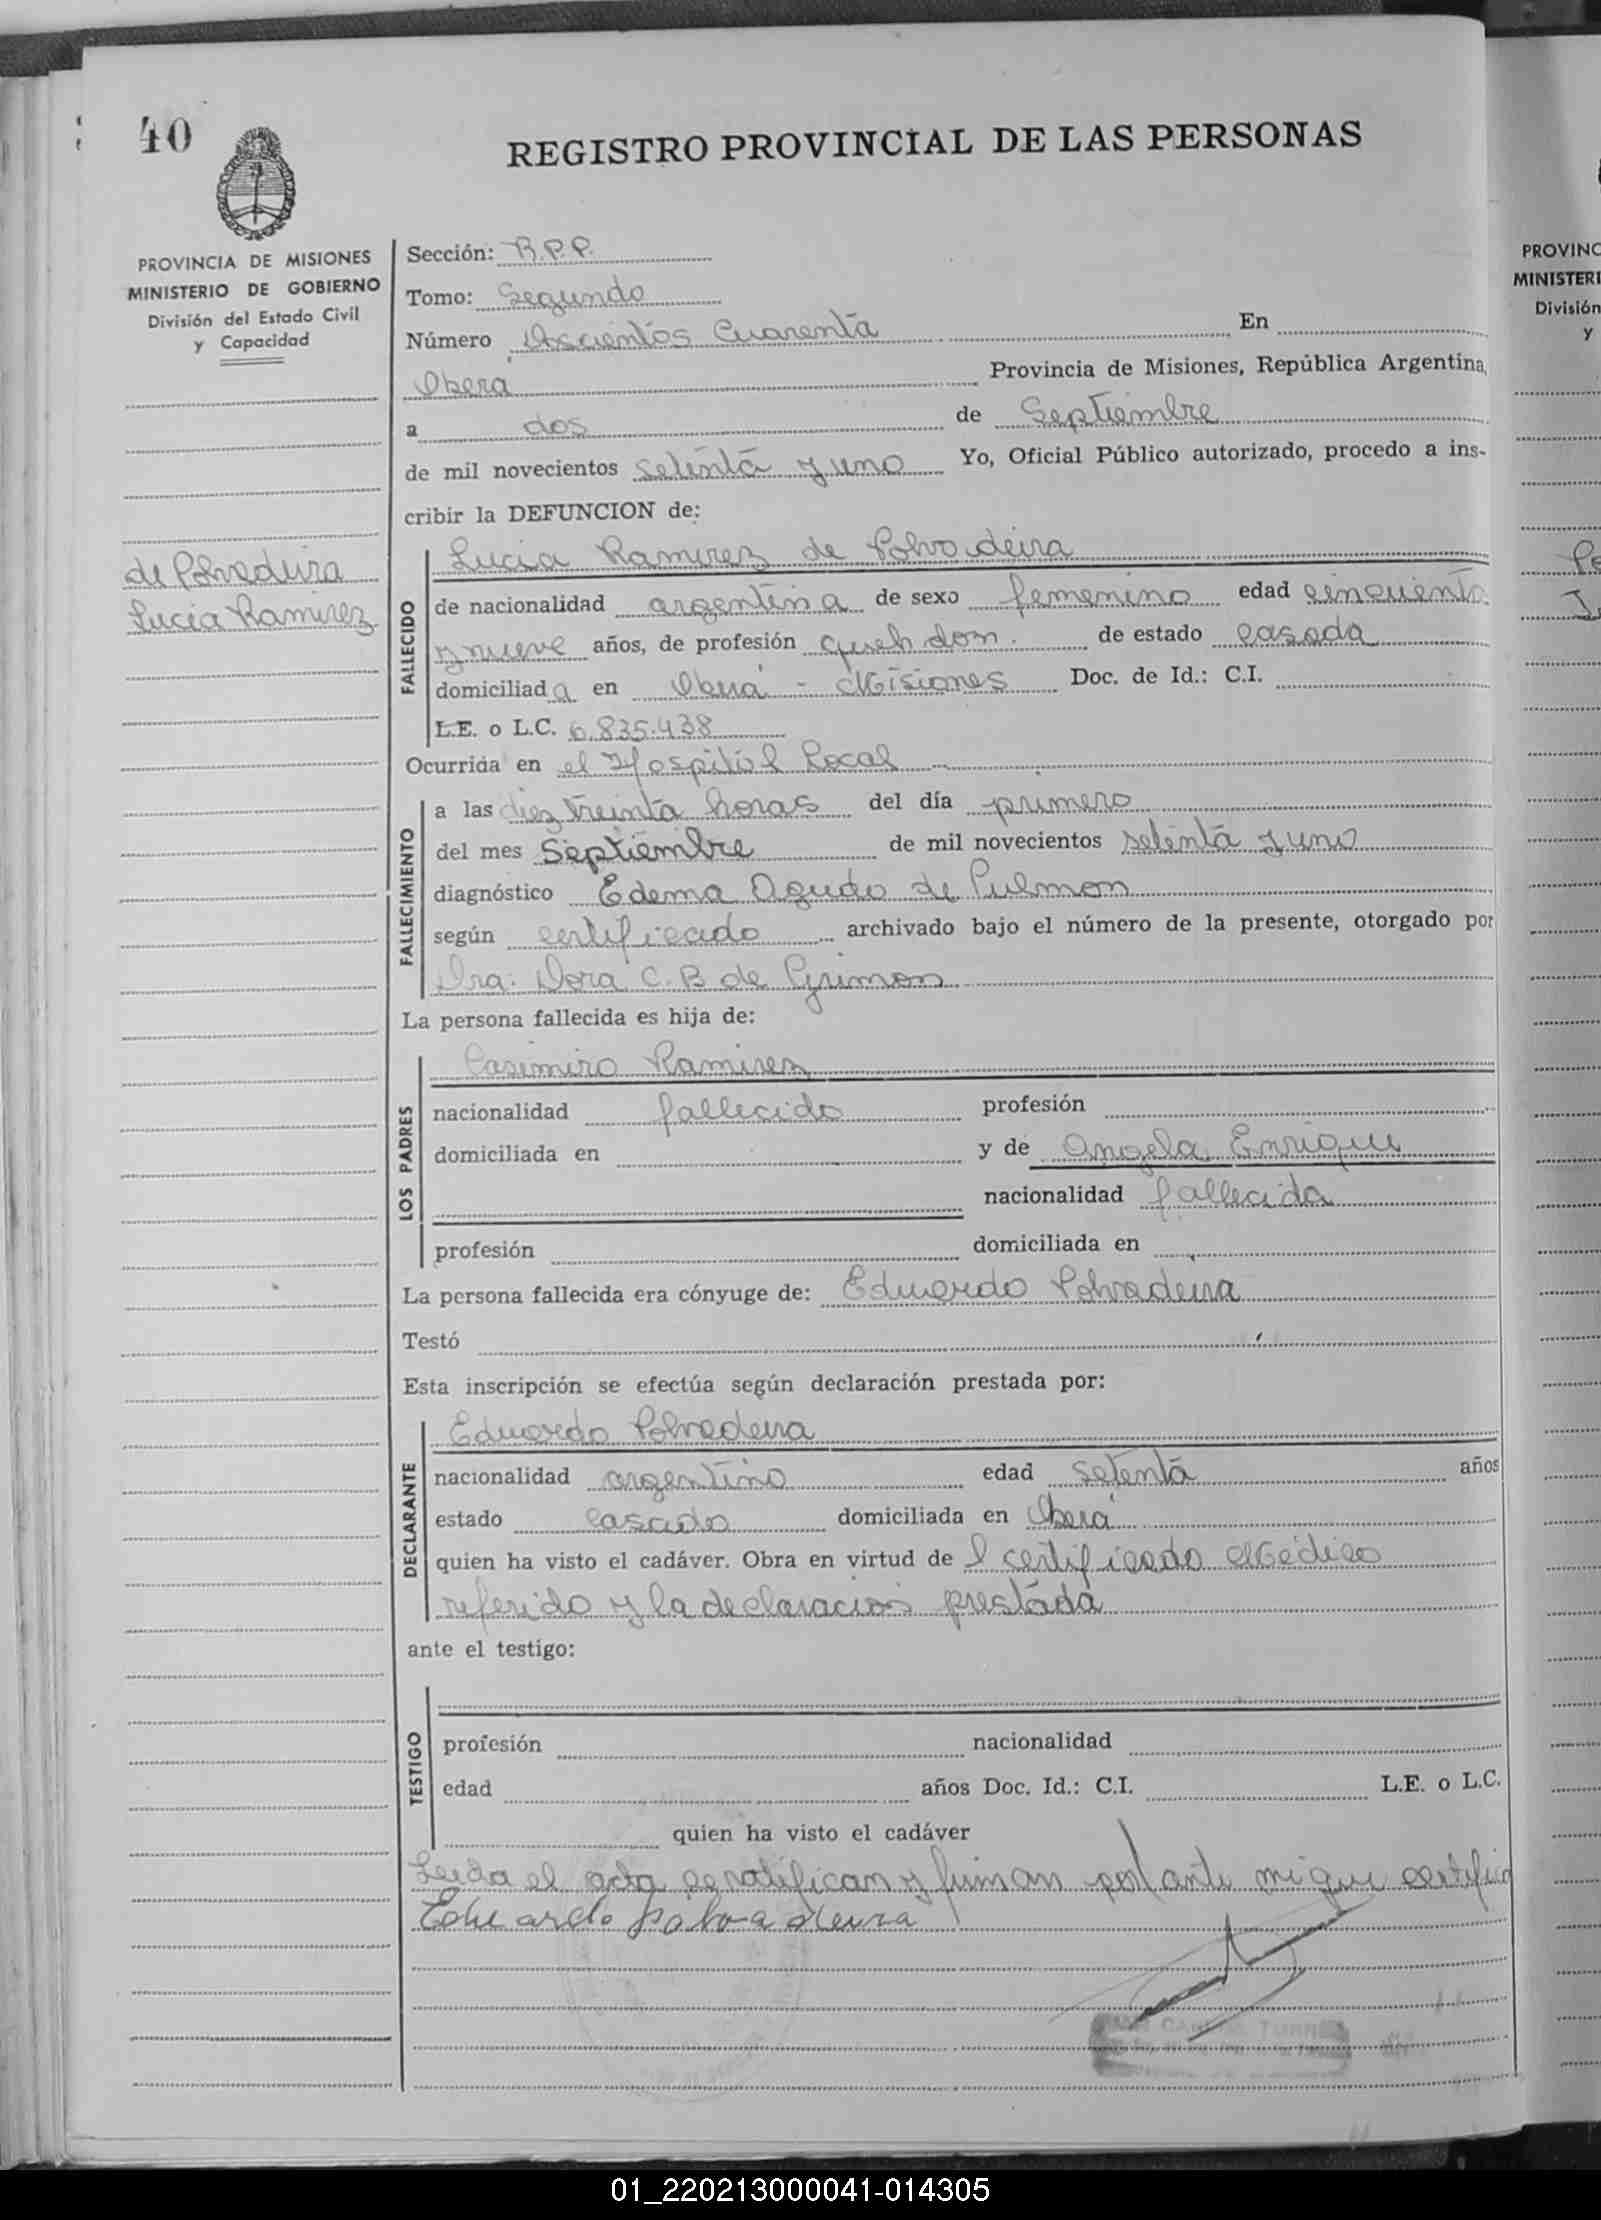 40
REGISTRO PROVINCIAL DE LAS PERSONAS
PROVINCIA DE MISIONES
MINISTERIO DE GOBIERNO
División del Estado Civil
y Capacidad
de Polvadeira
Lucia Ramirez
Sección: R.P.P.
Tomo: Segundo
Número Doscientos Cuarenta En
Obera Provincia de Misiones, República Argentina,
a dos de Septiembre
de mil novecientos setenta y uno Yo, Oficial Público autorizado, procedo a ins-
cribir la DEFUNCION de:
FALLECIDO
Lucia Ramirez de Polvadeira
de nacionalidad argentina de sexo femenino edad cincuenta
y nueve años, de profesión queh dom. de estado casada
domiciliada en Oberá - Misiones Doc. de Id.: C.I.
L.E. o L.C. 6.835.438
Ocurrida en el Hospital Local
FALLECIMIENTO
a las diez treinta horas del día primero
del mes Septiembre de mil novecientos setenta y uno
diagnóstico Edema Agudo de Pulmon
según certificado archivado bajo el número de la presente, otorgado por
Dra. Dora C. B de Grimon
La persona fallecida es hija de:
LOS PADRES
Casimiro Ramirez
nacionalidad fallecido profesión
domiciliada en y de Angela Enrique
nacionalidad fallecida
profesión domiciliada en
La persona fallecida era cónyuge de: Eduardo Polvadeira
Testó
Esta inscripción se efectúa según declaración prestada por:
DECLARANTE
Eduardo Polvadeira
nacionalidad argentino edad setenta años
estado casado domiciliada en Oberá
quien ha visto el cadáver. Obra en virtud de l certificado Médico
referido y la declaracion prestada
ante el testigo:
TESTIGO
profesión nacionalidad
edad años Doc. Id.: C.I. L.E. o L.C.
quien ha visto el cadáver
Leida el acta se ratifican y firman por ante mi que certifico
Eduardo polvadeira
PROVINC
MINISTERI
División
y
01_220213000041-014305